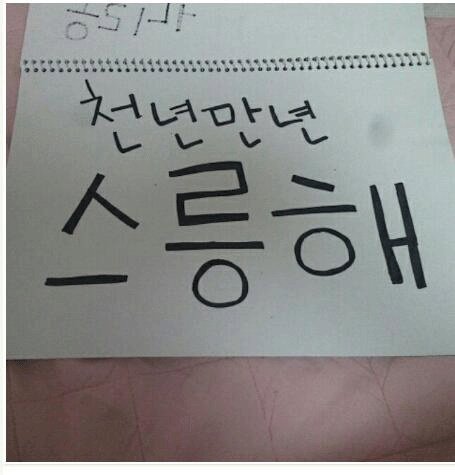 천년만년
스릉해